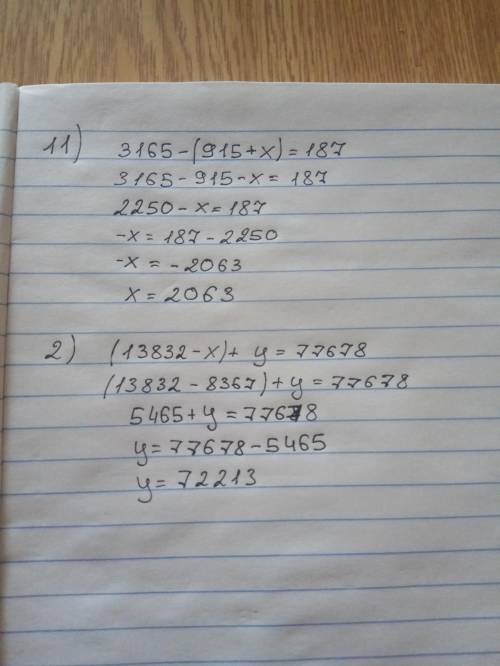 11) 3165-(915+x)=187
3165-915-x=187
2250-x=187
-x=187-2250
-x=-2063
x=2063
2) (13832-x)+y=77678
(13832-8367)+y=77678
5465+y=77678
y=77678-5465
y=72213